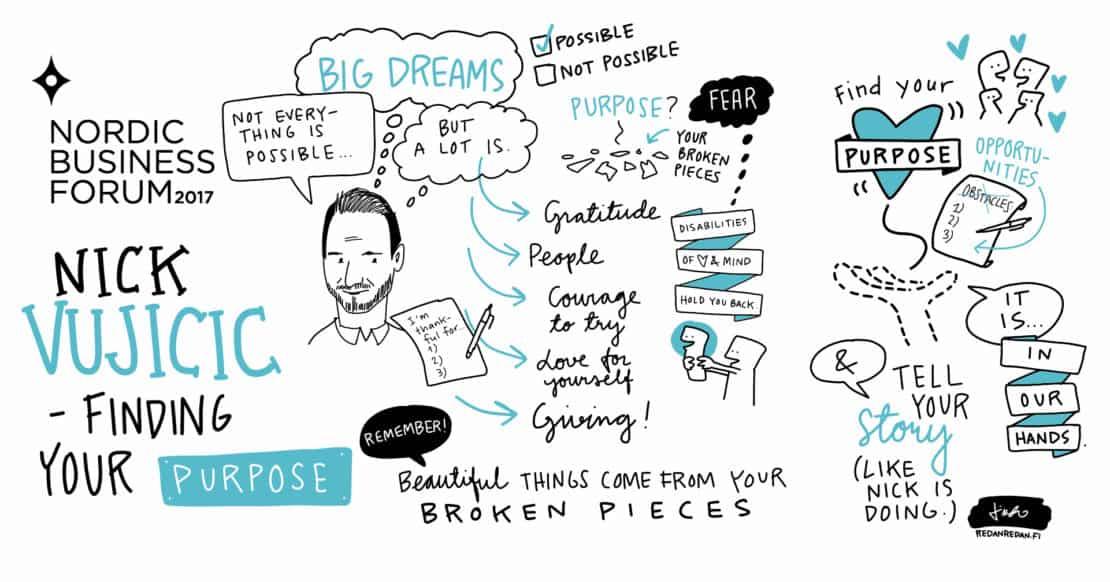 NORDIC
BUSINESS
FORUM 2017
NICK
VUJICIC
- FINDING
YOUR PURPOSE
BIG DREAMS
POSSIBLE
NOT POSSIBLE
NOT EVERY-
THING IS
POSSIBLE...
BUT
A LOT IS.
I'm
thank-
ful for...
1)
2)
3)
Gratitude
People
Courage
to try
Love for
yourself
Giving!
PURPOSE?
YOUR
BROKEN
PIECES
FEAR
DISABILITIES
OF ♡ & MIND
HOLD YOU BACK.
REMEMBER!
Beautiful THINGS COME FROM YOUR
BROKEN PIECES
Find your
PURPOSE
OPPORTU-
NITIES
OBSTACLES
1)
2)
3)
IT
IS...
IN
OUR
HANDS.
&
TELL
YOUR
Story
(LIKE
NICK IS
DOING.)
REDANREDAN.FI